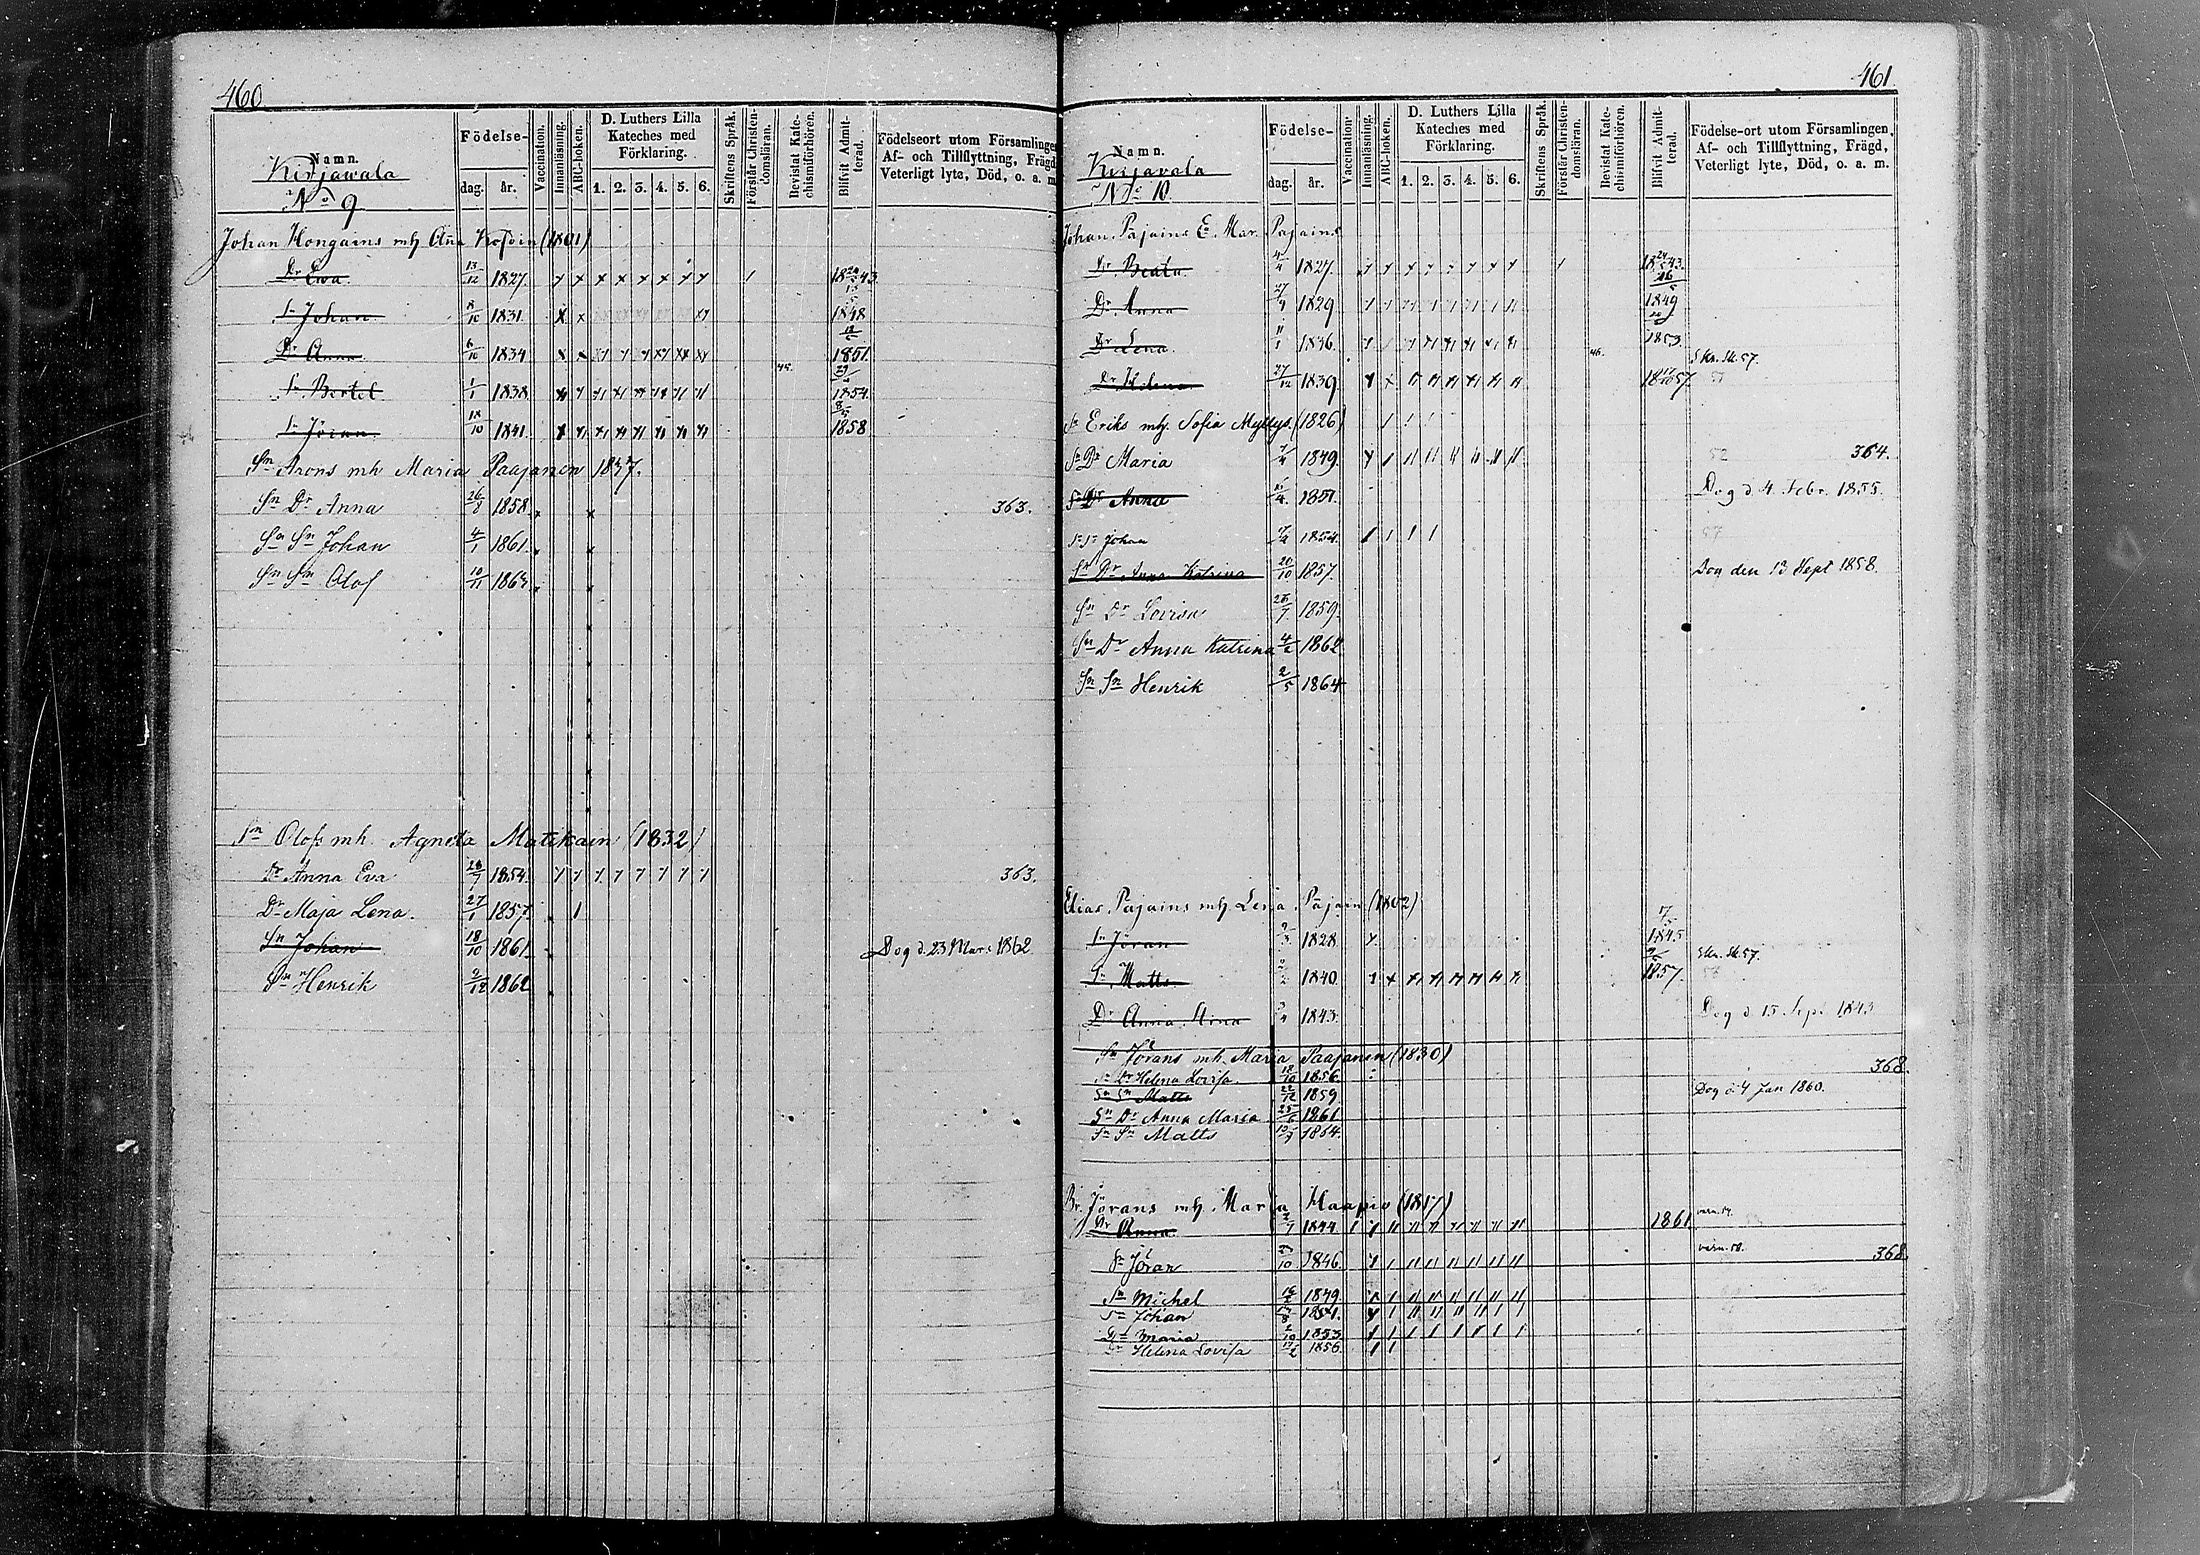 460
Namn.
Kirjawala
No 9
Födelse-
dag. år.
Vaccination.
Innanläsning.
ABC-boken.
D. Luthers Lilla
Kateches med
Förklaring.
1. 2. 3. 4. 5. 6.
Skriftens Språk.
Förstår Christen-
domsläran.
Bevistat Kate-
chismiförhören.
Blifvit Admit-
terad.
Födelseort utom Församlingen
Af- och Tillflyttning, Frägd
Veterligt lyte, Död, o. a. m.
Johan Hongains mh (1801)
Dr Ewa 13/12 1827. 43
Sn Johan 8/10 1831. 1848
Dr Anna 6/10 1834 1851.
Sn Bertel 1/1 1838 45. 1854.
Sn Jöran 18/10 1841 1858
Sn Arons mh Maria Paajanen
Sn Dr Anna 26/8 1858 363.
Sn Sn Johan 4/1 1861
Sn Sn Olof 10/11
Sn Olofs mh. Agneta Matikain (1832)
Dr Anna Eva 1854. 363.
Dr Maja Lena. 27/1 1857.
Sn Johan 18/10 1861 Dog d. 23 Mars 1862
Sn Henrik 2/12 1862
461.
Namn.
Kirjavala
No 10.
Födelse-
dag. år.
Vaccination.
Innanläsning.
ABC-boken.
D. Luthers Lilla
Kateches med
Förklaring.
1. 2. 3. 4. 5. 6.
Skriftens Språk.
Förstår Christen-
domsläran.
Bevistat Kate-
chismiförhören.
Blifvit Admit-
terad.
Födelse-ort utom Församlingen,
Af- och Tillflyttning, Frägd,
Veterligt lyte, Död, o. a. m.
Johan Pajains E. Mar. Pajains
Dr Beata 1827. 43.
Dr Anna 1829 1849
Dr Lena 11/1 1836 46. 1853.
Dr Helena 27/12 1839 57.
Sn Eriks mh. Sofia Myllys. (1826)
Sn Dr Maria 1849 52 364.
Sn Dr Anna 1851. Dog d. 4 Febr. 1855.
Sn Sn Johan 1854. 57
Sn Dr Anna Katrina 20/10 1857. Dog den 13 Sept 1858.
Sn Dr Lovisa 1859.
Sn Dr Anna Katrina 1862
Sn Sn Henrik 2/5 1864
Elias Pajains mh Lena Pajain (1802)
Sn Jöran 1828 1845
Sn Matts 1840 1857.
Dr Anna Stina 1843. Dog d. 15 Sept 1843
Sn Jörans mh. Maria Paajanen (1830) 368.
Sn Dr Helena Lovisa. 18/10 1856
Sn Sn Matts 22/12 1859 Dog d. 4 Jan 1860.
Sn Dr Anna Maria 1861
Sn Sn Matts 1864.
Br. Jörans mh. Maria Haapio (1817)
Dr Anna 1844 1861
Sn Jöran 1846. 368
Sn Michel 1849
Sn Johan
Dr Maria 1853.
Dr Helena Lovisa 1856